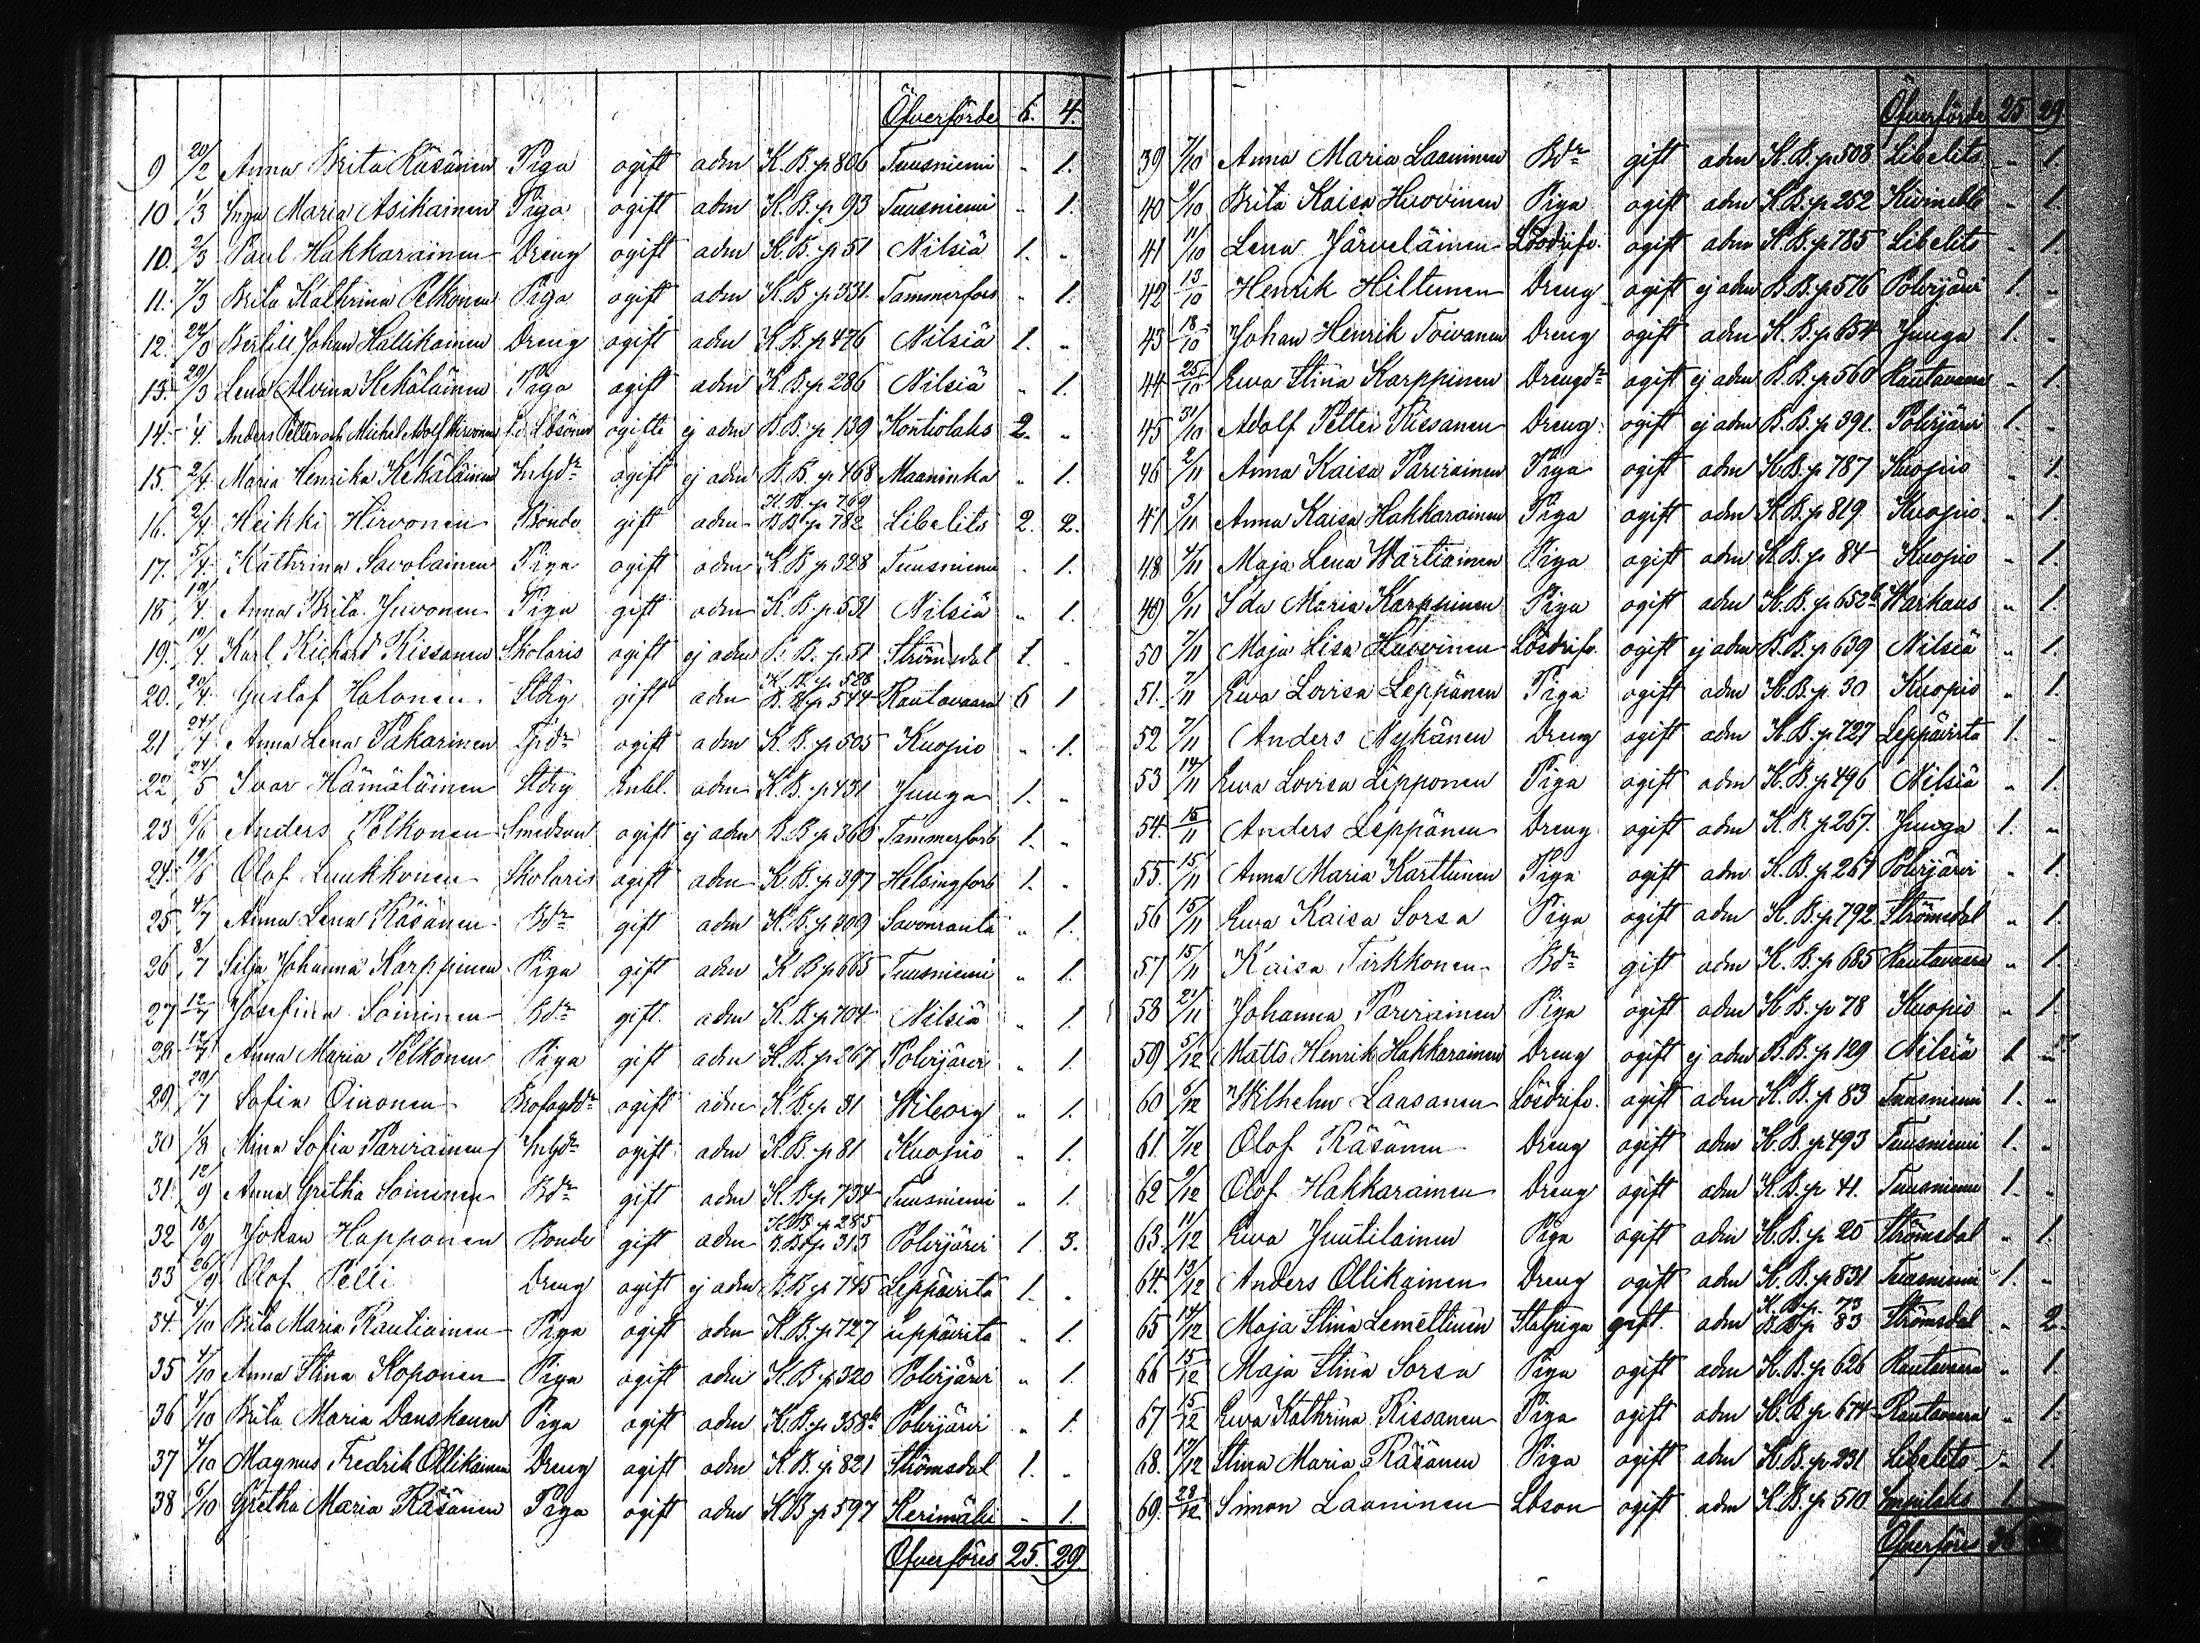 Öfverförde 6. 4.
9 20/2 Anna Brita Räsänen Piga ogift adm K.B. p 806 Tuusniemi „ 1.
10 1/3 Inga Maria Asikainen Piga ogift adm K.B. p 93 Tuusniemi „ 1.
10. 2/3 Paul Hakkarainen Dreng ogift adm K.B. p 51 Nilsiä 1. „
11. 7/3 Brita Kathrina Pelkonen Piga ogift adm K.B. p 331 Tammerfors „ 1.
12. 22/3 Johan Hallikainen Dreng ogift adm K.B. p 476 Nilsiä 1. „
13. 29/3 Lena Alvina Kekäläinen Piga ogift adm K.B. p 286 Nilsiä „ 1.
14. 4. Anders Petter och Michel Adolf Hirvonen Lbsöner ogifte ej adm B.B. p 139 Kontiolaks 2. „
15. 2/4 Maria Henrika Kekäläinen Inhyd:r ogift ej adm B.B. p 468 Maaninka „ 1.
16. 2/4 Heikki Hirvonen Bonde gift adm K.B. p 769 B.B. p 782 Libelits 2. 2.
17. 5/4 Kathrina Savolainen Piga ogift adm K.B. p 328 Tuusniemi „ 1.
18 19/4 Anna Brita Juvonen Piga gift adm K.B. p 531 Nilsiä „ 1.
19. 19/4 Karl Richard Rissanen Skolaris ogift ej adm B.B. p 51 Strömsdal 1. „
20. 20/4 Gustaf Halonen Stdrg gift adm K.B. p 528 B.B. p 544 Rautavaara 6 1
21 24/4 Anna Lena Pakarinen ogift adm K.B. p 505 Kuopio „ 1.
22 24/5 Ivar Hämäläinen Stdrg Enkl. adm K.B. p 431 Juuga 1. „
23 6/6 Anders Pelkonen Smedson ogift ej adm B.B. p 360 Tammerfors 1. „
24. 19/6 Olof Luukkonen Skolaris ogift adm K.B. p 397 Helsingfors 1. „
25 4/7 Anna Lena Räsänen Bd:r gift adm K.B. p 309 Savonranta „ 1.
26 8/7 Silja Johanna Karppinen Piga gift adm K.B. p 665 Tuusniemi „ 1.
27 12/7 Josefina Soininen Bd:r gift adm K.B. p 704 Nilsiä „ 1.
28 17/7 Anna Maria Pelkonen Piga gift adm K.B. p 267 Polvijärvi „ 1.
29 20/7 Sofia Oinonen ogift adm K.B. p 31 Wiborg „ 1.
30 1/8 Mina Sofia Parviainen Inhyd:r ogift adm K.B. p 81 Kuopio „ 1.
31. 12/9 Anna Gretha Soininen Bd:r gift adm K.B. p 734 Tuusniemi „ 1.
32 18/9 Johan Happonen Bonde gift adm K.B. p 285 B.B. p 313 Polvijärvi 1 3.
33 26/9 Olof Pelli Dreng ogift ej adm B.B. p 745 Leppävirta 1. „
34. 4/10 Brita Maria Rautiainen Piga ogift adm K.B. p 727 Leppävirta „ 1.
35 4/10 Anna Stina Koponen Piga ogift adm K.B. p 320 Polvijärvi „ 1.
36 4/10 Brita Maria Danskanen Piga ogift adm K.B. p 358 b Polvijärvi „ 1.
37 4/10 Magnus Fredrik Ollikainen Dreng ogift adm K.B. p 821 Strömsdal 1. „
38 6/10 Gretha Maria Räsänen Piga ogift adm K.B. p 597 Kerimäki „ 1.
Öfverföres 25. 29.
Öfverförde 25 29.
39 7/10 Anna Maria Laaninen Bd:r gift adm K.B. p 508 Libelits „ 1.
40 9/10 Brita Kaisa Huovinen Piga ogift adm K.B. p 252 Kivinebb „ 1.
41 11/10 Lena Järveläinen Lösdrifv. ogift adm K.B. p 785 Libelits „ 1.
42 13/10 Henrik Hiltunen Dreng ogift ej adm B.B. p 576 Polvijärvi 1. „
43 18/10 Johan Henrik Toivanen Dreng ogift adm K.B. p 654 Juuga 1. „
44 25/10 Ewa Stina Karppinen Drengd:r ogift ej adm B.B. p 560 Rautavaara „ 1
45 31/10 Adolf Petter Rissanen Dreng ogift ej adm B.B. p 391. Polvijärvi 1. „
46 2/11 Anna Kaisa Parviainen Piga ogift adm K.B. p 787 Kuopio „ 1.
47 3/11 Anna Kaisa Hakkarainen Piga ogift adm K.B. p 819 Kuopio „ 1.
48 4/11 Maja Lena Wartiainen Piga ogift adm K.B. p 84 Kuopio „ 1.
49 6/11 Ida Maria Karppinen Piga ogift adm K.B. p 652 b Warkaus „ 1.
50 7/11 Maja Lisa Huovinen Lösdrifv. ogift ej adm B.B. p 639 Nilsiä „ 1.
51. 7/11 Ewa Lovisa Leppänen Piga ogift adm K.B. p 30 Kuopio „ 1.
52 7/11 Anders Nykänen Dreng ogift adm K.B. p 727 Leppävirta 1. „
53 14/11 Ewa Lovisa Lepponen Piga ogift adm K.B. p 496 Nilsiä „ 1.
54. 15/11 Anders Leppänen Dreng ogift adm K.B. p 267. Juuga 1. „
55. 15/11 Anna Maria Karttunen Piga ogift adm K.B. p 261 Polvijärvi „ 1.
56 15/11 Ewa Kaisa Sorsa Piga ogift adm K.B. p 792 Strömsdal „ 1.
57 15/11 Kaisa Tirkkonen Bd:r gift adm K.B. p 685 Rautavaara „ 1.
58 21/11 Johanna Parviainen Piga ogift adm K.B. p 78 Kuopio „ 1.
59 5/12 Matts Henrik Hakkarainen Dreng ogift ej adm B.B. p 129 Nilsiä 1. „
60 6/12 Wilhelm Laasanen Lösdrifv. ogift adm K.B. p 83 Tuusniemi 1. „
61. 7/12 Olof Räsänen Dreng ogift adm K.B. p 493 Tuusniemi 1. „
62 9/12 Olof Hakkarainen Dreng ogift adm K.B. p 41. Tuusniemi 1. „
63. 11/12 Ewa Juutilainen Piga ogift adm K.B. p 20 Strömsdal „ 1.
64. 13/12 Anders Ollikainen Dreng ogift adm K.B. p 831 Tuusniemi 1. „
65 14/12 Maja Stina Lemettinen Statpiga gift adm K.B. p 73 B.B. p 83 Strömsdal „ 2.
66 15/12 Maja Stina Sorsa Piga ogift adm K.B. p 626 Rautavaara „ 1.
67 15/12 Ewa Kathrina Rissanen Piga ogift adm K.B. p 674 Rautavaara „ 1.
68. 17/12 Stina Maria Räsänen Piga ogift adm K.B. p 231 Libelits „ 1
69. 23/12 Simon Laaninen Lbson ogift adm K.B. p 510 Impilaks 1. „
Öfverföres 36